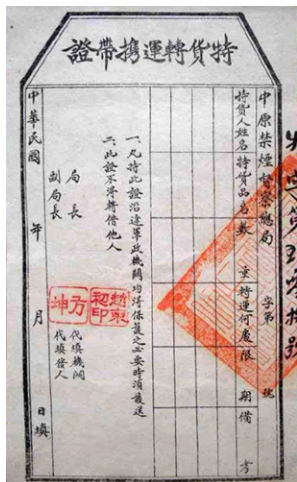 特貨轉運攜帶證
中原禁煙督察總局 字第 號
持貨人姓名 特貨品名 數 重 特運何處 限期 備考
一、凡持此證沿途軍政機關均得保護之必要時須護送
二、此證不得轉借他人
局長
副局長
方坤
代填機關
代填發人
中華民國 年 月 日填